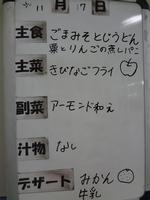 ※ 11月17日
主食 ごまみそとじうどん
栗とりんごの蒸しパン
主菜 きびなごフライ
副菜 アーモンド和え
汁物 なし
デザート みかん
牛乳